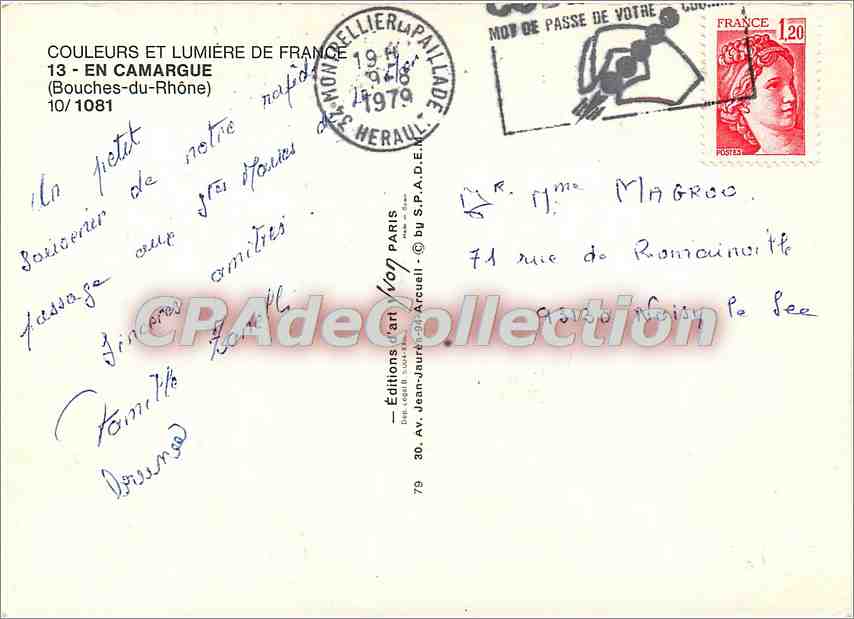 COULEURS ET LUMIÈRE DE FRANCE
13 - EN CAMARGUE
(Bouches-du-Rhône)
10/1081
Un petit
souvenir de notre rapide
passage aux Stes Maries de la Mer
Sincères amitiés
Famille
34 MONTPELLIER LA PAILLADE
19 H
9-8
1979
HERAULT
MOT DE PASSE DE VOTRE COURRIER
FRANCE
1,20
POSTES
Mr. Mme MAGROU.
71 rue de Romainville
93130 Noisy le Sec
— Éditions d'art Yvon PARIS
30. Av. Jean-Jaurès-94-Arcueil - © by S.P.A.D.E.M.
79
CPAdeCollection